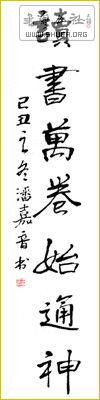 讀書萬卷始通神
己丑之冬潘嘉音书